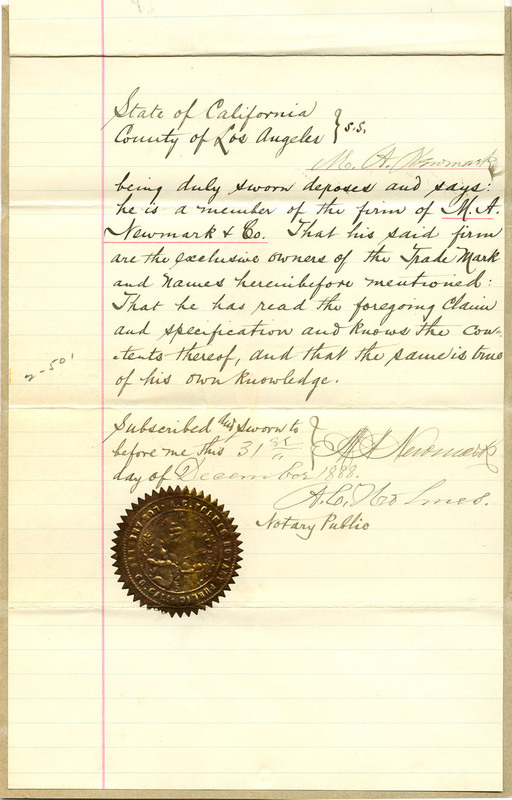 State of California
County of Los Angeles } s.s.
M. A. Newmark
being duly sworn deposes and says:
he is a member of the firm of M. A.
Newmark & Co. That his said firm
are the exclusive owners of the Trade Mark
and names hereinbefore mentioned:
That he has read the foregoing claim
and specification and knows the con-
tents thereof, and that the same is true
of his own knowledge.
2-50
Subscribed and sworn to
before me this 31st } M A Newmark
day of December 1888.
A. C. Holmes.
Notary Public